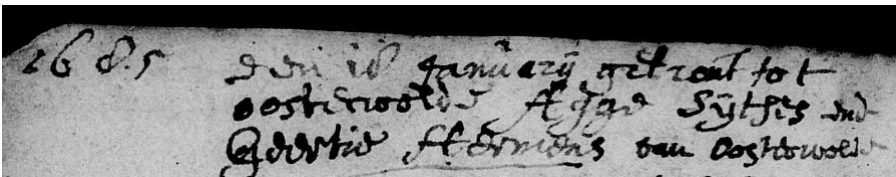 1685 den 18 January getrout tot
oosterwolde Agge Sÿthes end
Geertie Hermens van Oosterwolde